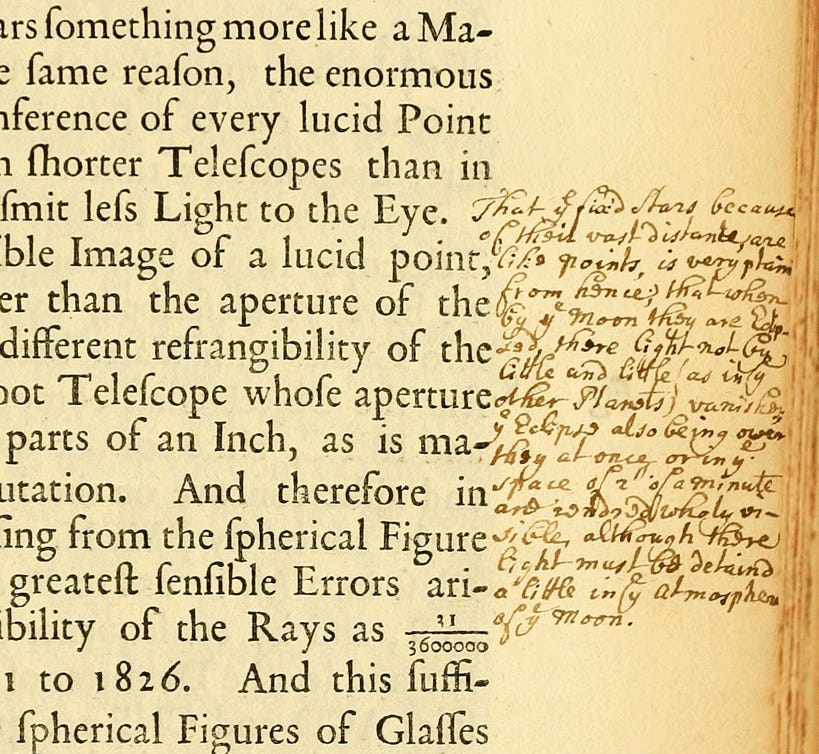 ars ſomething more like a Ma-
e ſame reaſon, the enormous
nference of every lucid Point
n ſhorter Teleſcopes than in
ſmit leſs Light to the Eye.
ible Image of a lucid point,
er than the aperture of the
different refrangibility of the
oot Teleſcope whoſe aperture
parts of an Inch, as is ma-
utation. And therefore in
ſing from the ſpherical Figure
greateſt ſenſible Errors ari-
ibility of the Rays as 31/3600000
1 to 1826. And this ſuffi-
ſpherical Figures of Glaſſes
That yᵉ fixd Stars because
of their vast distance, are
like points, is very plain
from hence; that when
by yᵉ Moon they are Eclip-
sed, there light not by
little and little (as in yᵉ
other Planets) vanishes,
yᵉ Eclipse also being over
they at once, or in yᵉ
space of a minute
are rendred wholy vi-
sible, although there
light must be detaind
a little in yᵉ Atmosphere
of yᵉ Moon.